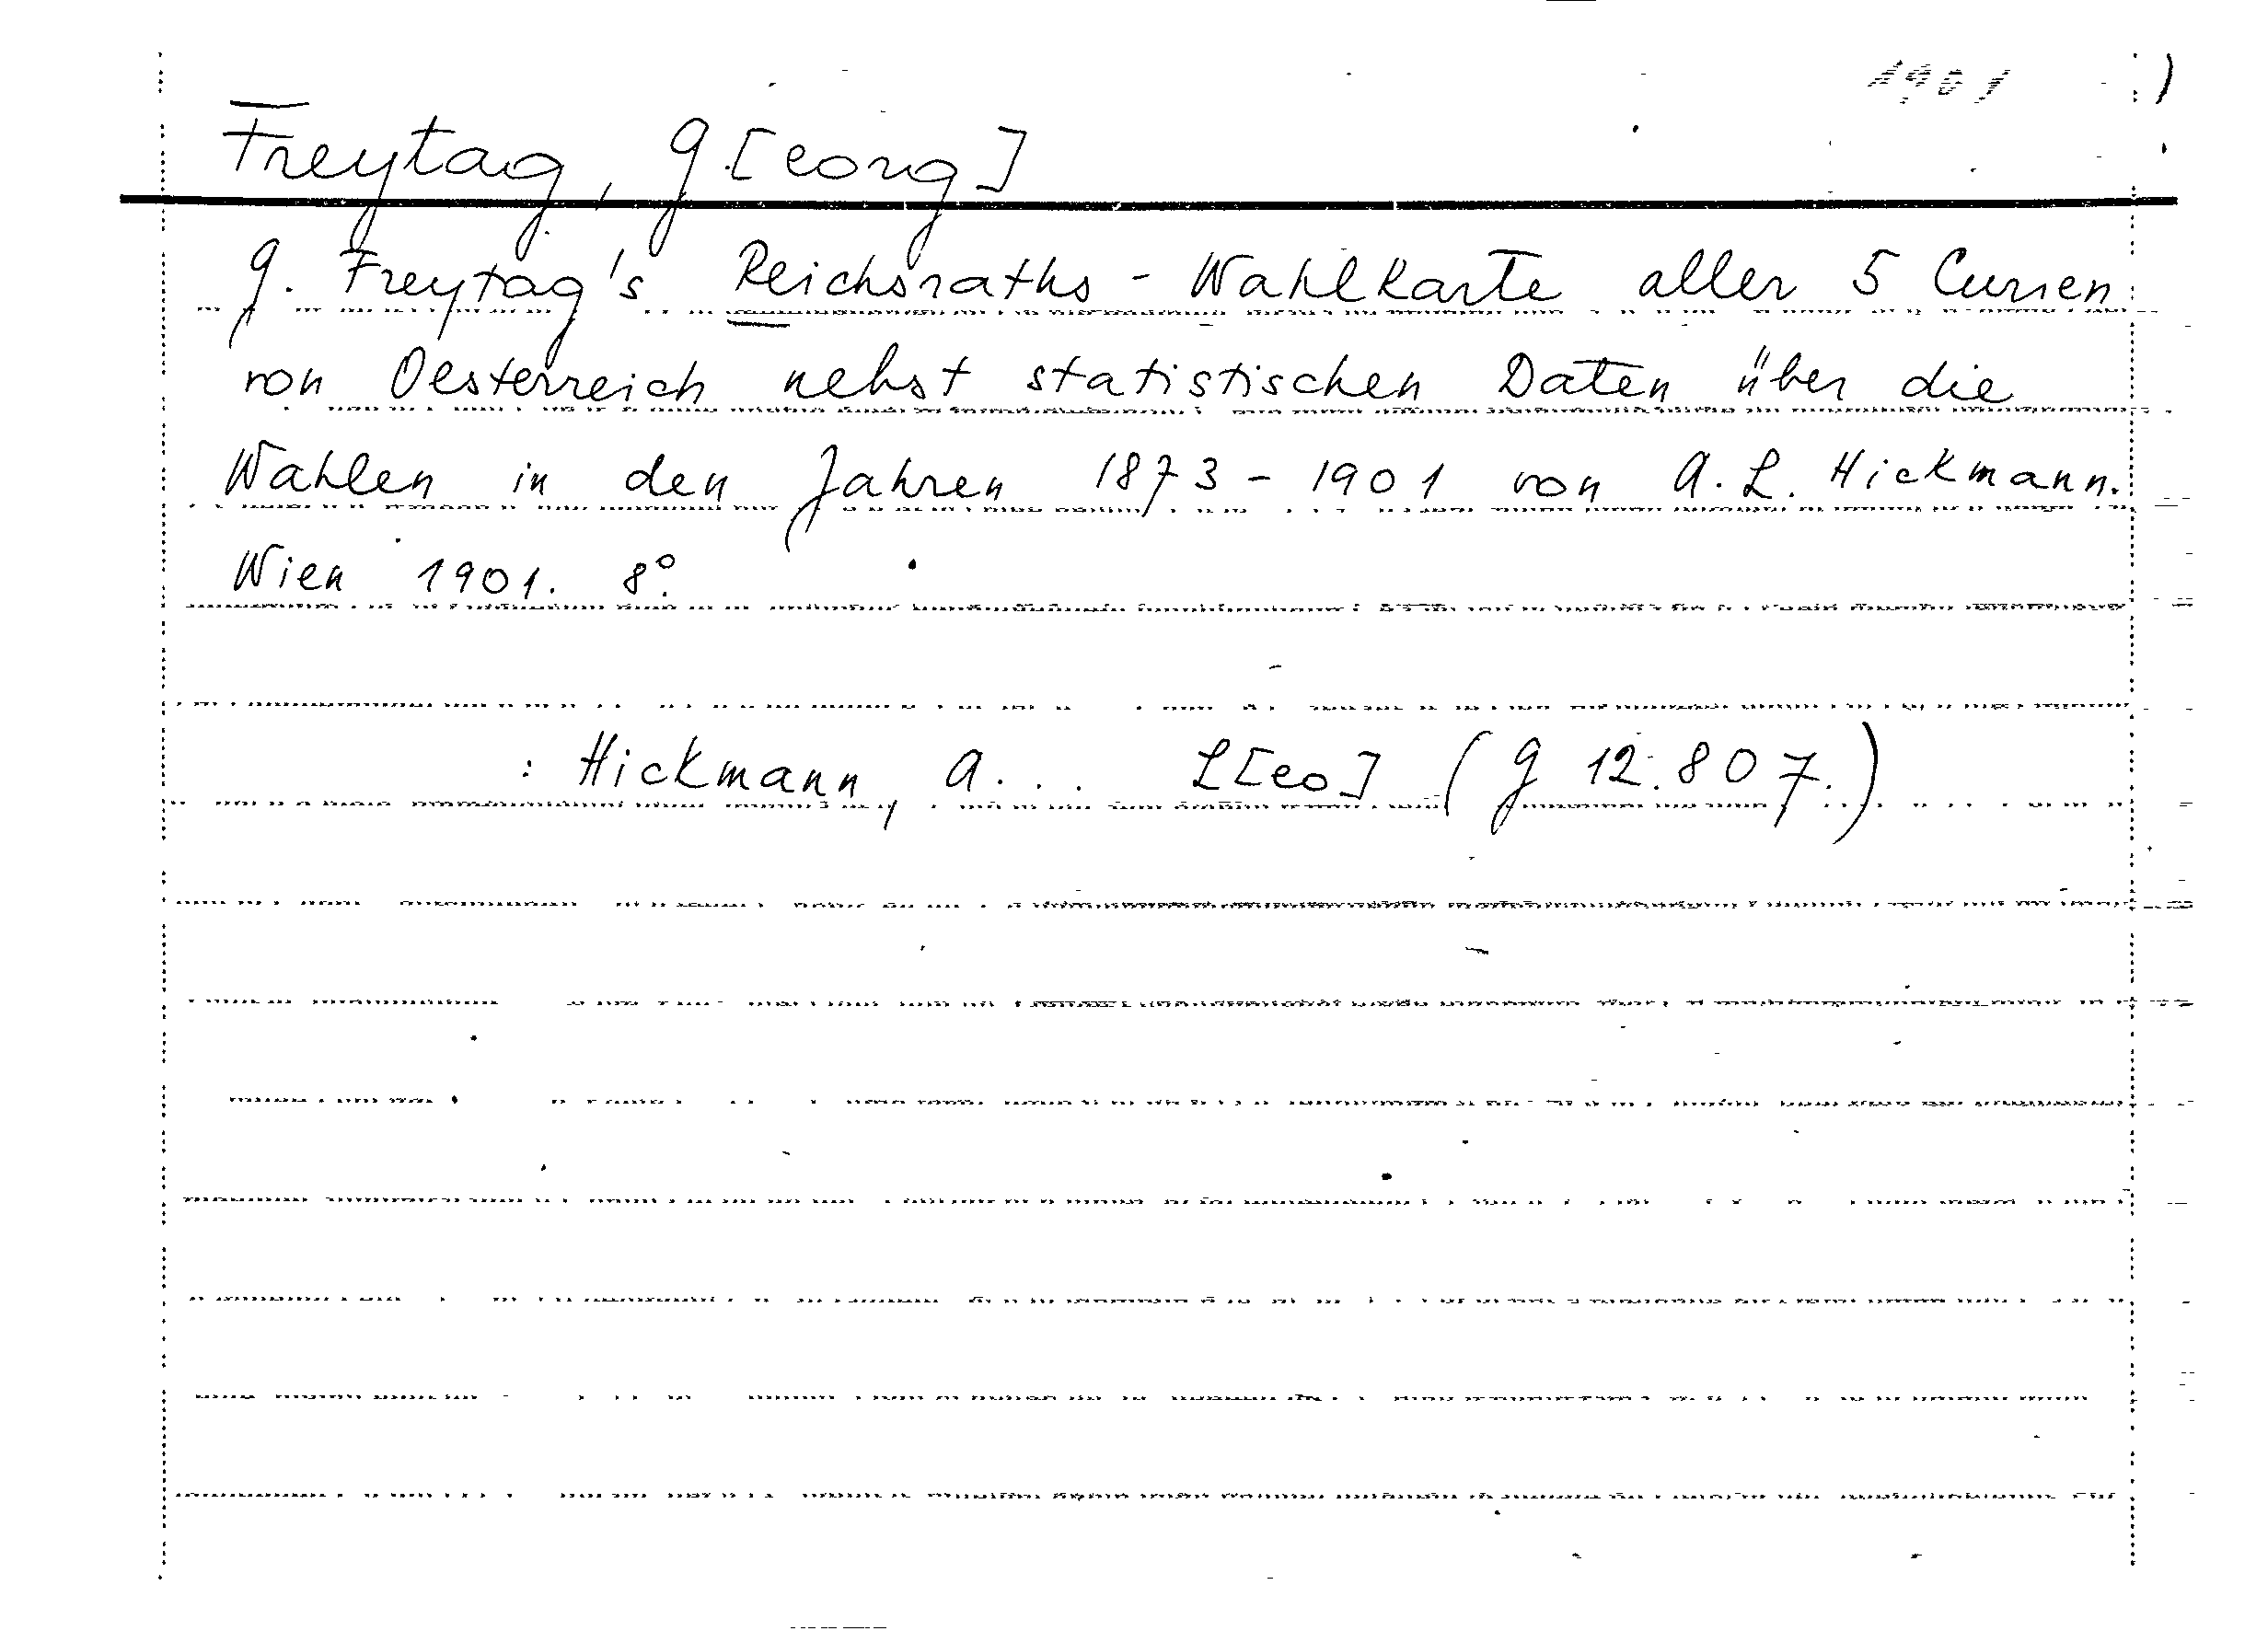 1901
Freytag, G[eorg]
G. Freytag's Reichsraths-Wahlkarte aller 5 Curien
von Oesterreich nebst statistischen Daten über die
Wahlen in den Jahren 1873-1901 von A. L. Hickmann.
Wien 1901. 8°.
: Hickmann, A... L[eo] (G 12.807.)